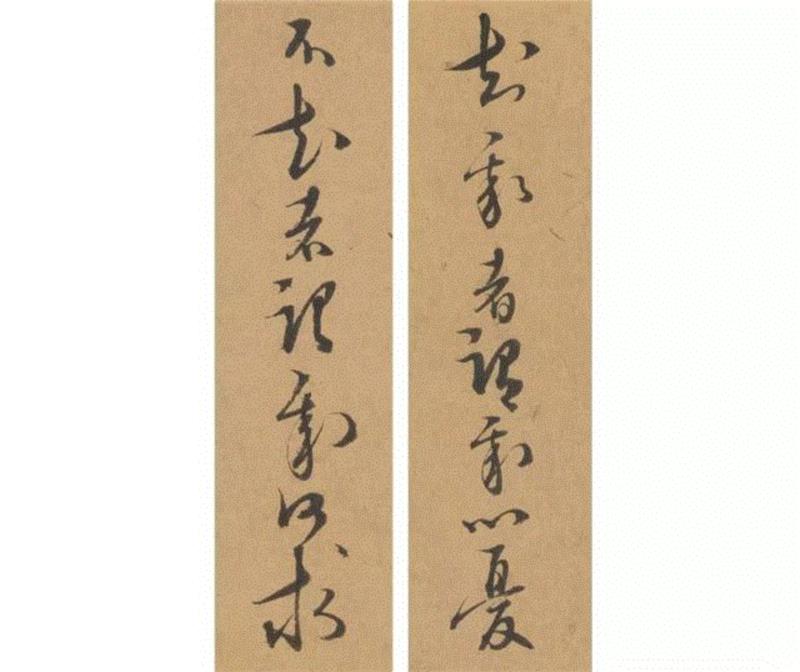 知我者謂我心憂
不知者謂我何求